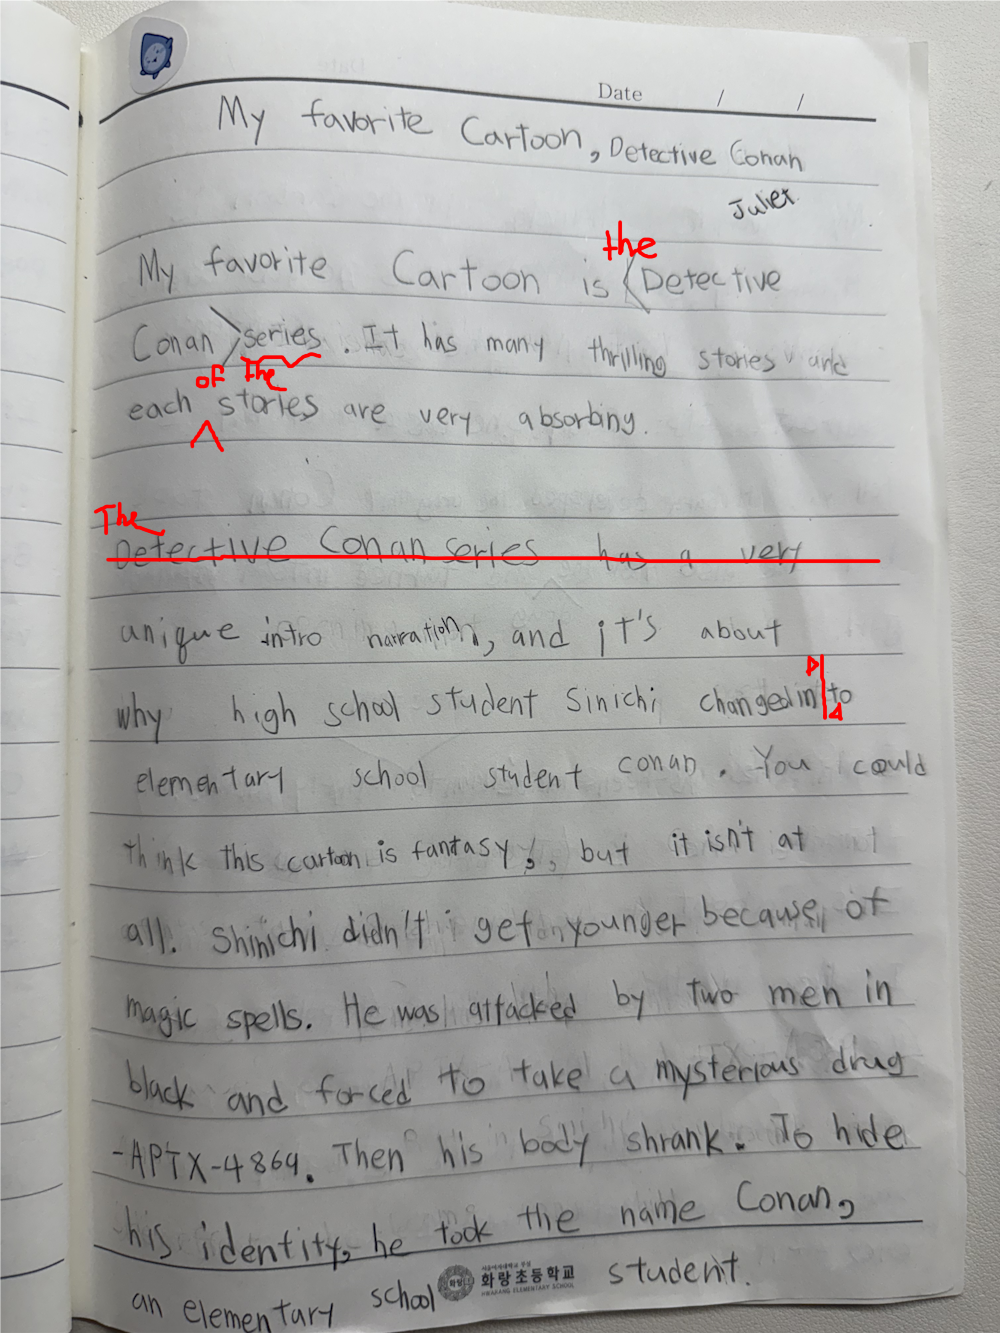 Date / /
My favorite Cartoon, Detective Conan
Juliet
the
My favorite Cartoon is Detective
Conan series. It has many thrilling stories and
of the
each stories are very absorbing.
The
Detective Conan series has a very
unique intro narration, and it's about
why high school student Sinichi changed into
elementary school student conan. You could
think this cartoon is fantasy, but it isn't at
all. Shinichi didn't get younger because of
magic spells. He was attacked by two men in
black and forced to take a mysterious drug
-APTX-4869. Then his body shrank. To hide
his identity, he took the name Conan,
an elementary school student.
화랑초등학교
HWARANG ELEMENTARY SCHOOL